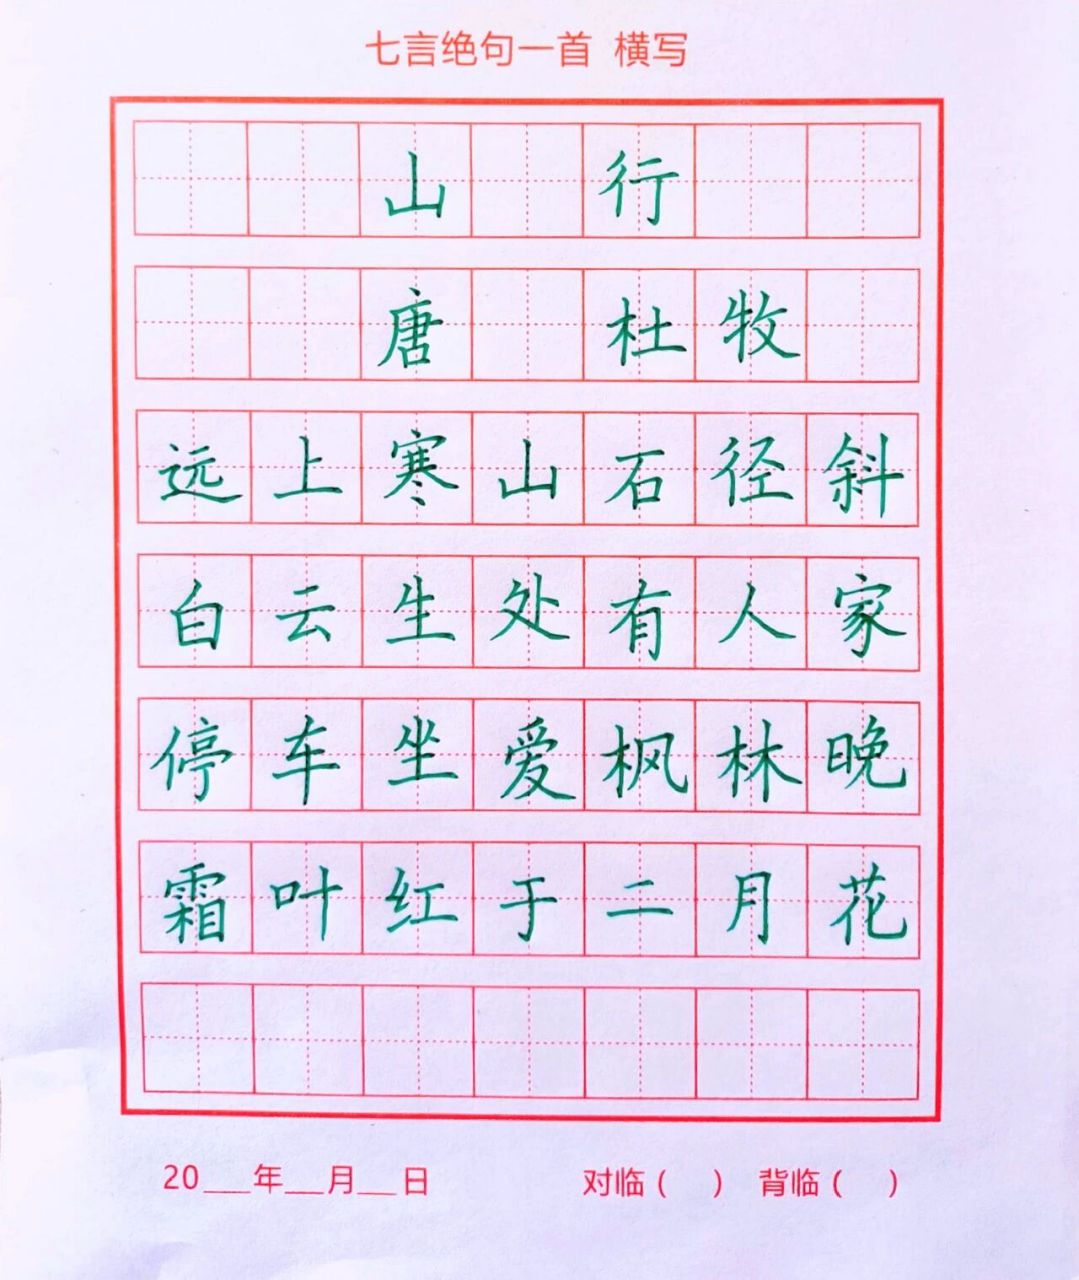 七言绝句一首 横写
山 行
唐 杜牧
远上寒山石径斜
白云生处有人家
停车坐爱枫林晚
霜叶红于二月花
20___年___月___日 对临（ ） 背临（ ）